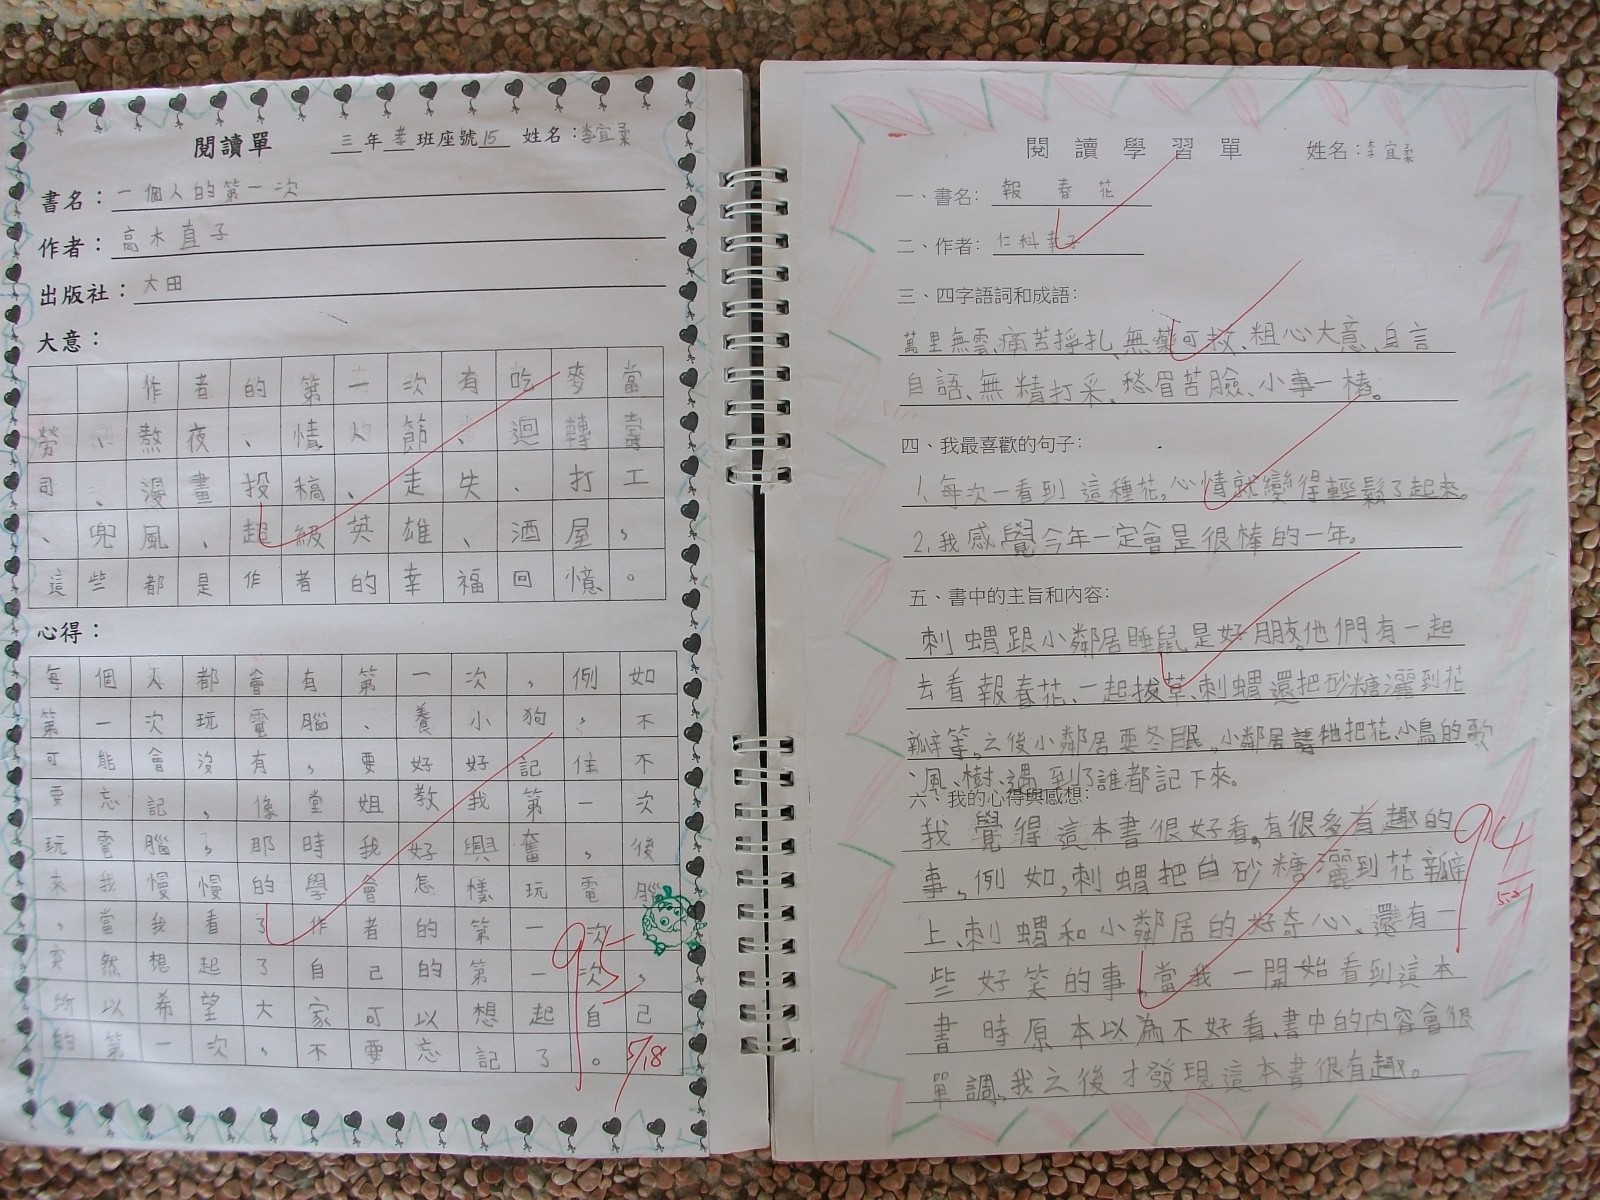 閱讀單 三年孝班座號15 姓名：李宜柔
書名：一個人的第一次
作者：高木直子
出版社：大田
大意：
作者的第一次有吃麥當
勞、熬夜、情人節、迴轉壽
司、漫畫投稿、走失、打工
、兜風、超級英雄、酒屋，
這些都是作者的幸福回憶。
心得：
每個人都會有第一次，例如
第一次玩電腦、養小狗，不
可能會沒有，要好好記住不
要忘記，像堂姐教我第一次
玩電腦，那時我好興奮，後
來我慢慢的學會怎樣玩電腦
，當我看了作者的第一次，
突然想起了自己的第一次，
所以希望大家可以想起自己
的第一次，不要忘記了。
95
5/18
閱讀學習單 姓名：李宜柔
一、書名：報春花
二、作者：仁科幸子
三、四字語詞和成語：
萬里無雲、痛苦掙扎、無藥可救、粗心大意、自言
自語、無精打采、愁眉苦臉、小事一樁。
四、我最喜歡的句子：
1、每次一看到這種花，心情就變得輕鬆了起來。
2、我感覺今年一定會是很棒的一年。
五、書中的主旨和內容：
刺蝟跟小鄰居睡鼠是好朋友，他們有一起
去看報春花、一起拔草、刺蝟還把砂糖灑到花
瓣等，之後小鄰居要冬眠，小鄰居請牠把花、小鳥的歌
、風、樹、遇到了誰都記下來。
六、我的心得與感想：
我覺得這本書很好看，有很多有趣的
事，例如，刺蝟把白砂糖灑到花瓣
上、刺蝟和小鄰居的好奇心、還有一
些好笑的事，當我一開始看到這本
書時原本以為不好看、書中的內容會很
單調，我之後才發現這本書很有趣。
94